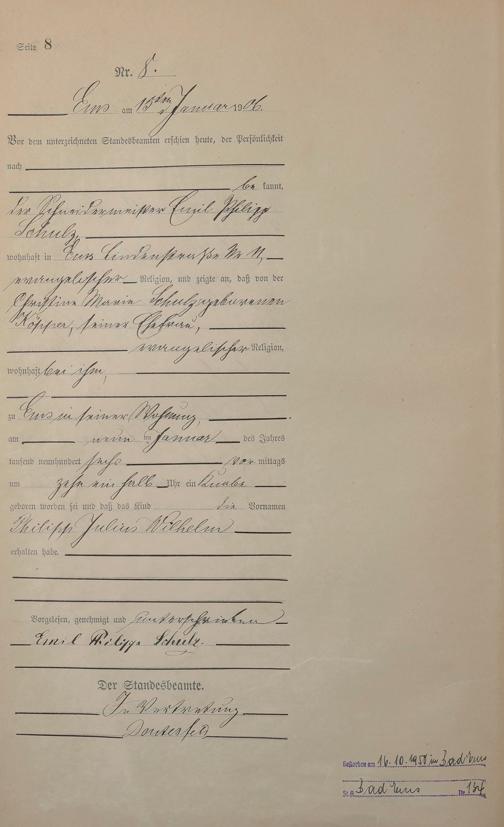 Seite 8
Nr. 8.
Ems am 13ten Januar 1906.
Vor dem unterzeichneten Standesbeamten erschien heute, der Persönlichkeit
nach
be kannt,
der Schneidermeister Emil Philipp
Schulz,
wohnhaft in Ems Lindenstraße Nr 11,
evangelischer Religion, und zeigte an, daß von der
Christine Marie Schulz geborenen
seiner Ehefrau,
evangelischer Religion,
wohnhaft bei ihm,
zu Ems in seiner Wohnung,
am neun ten Januar des Jahres
tausend neunhundert sechs vor mittags
um zehn ein halb Uhr ein Knabe
geboren worden sei und daß das Kind die Vornamen
Philipp Julius Wilhelm
erhalten habe.
Vorgelesen, genehmigt und unterschrieben
Emil Philipp Schulz.
Der Standesbeamte.
In Vertretung
Gestorben am 16.10.1958 in Bad Ems
St.A. Bad Ems Nr.